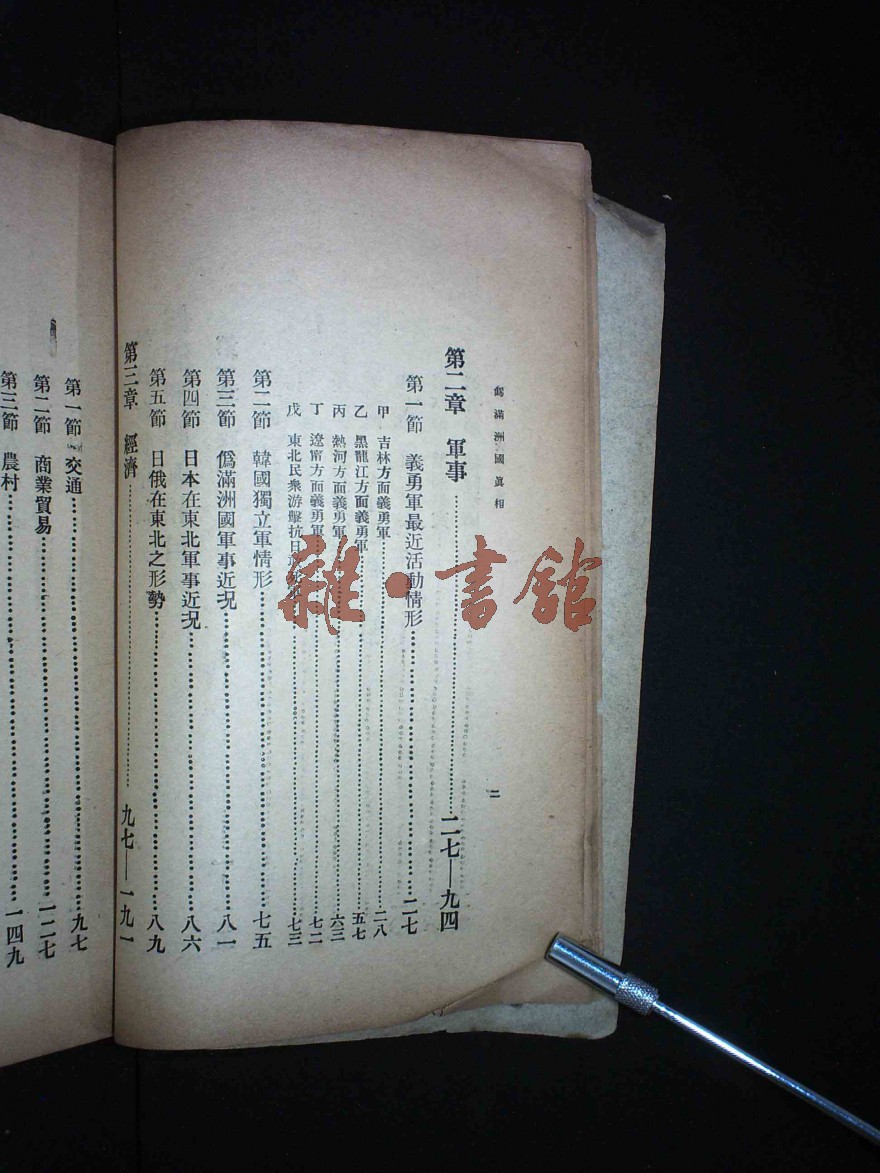 僞滿洲國眞相
二
第二章 軍事……二七—九四
第一節 義勇軍最近活動情形……二七
甲 吉林方面義勇軍……二八
乙 黑龍江方面義勇軍……五七
丙 熱河方面義勇軍……六三
丁 遼甯方面義勇軍……七二
戊 東北民衆游擊抗日……七三
第二節 韓國獨立軍情形……七五
第三節 僞滿洲國軍事近況……八一
第四節 日本在東北軍事近況……八六
第五節 日俄在東北之形勢……八九
第三章 經濟……九七—一九一
第一節 交通……九七
第二節 商業貿易……一二七
第三節 農村……一四九
雜·書館